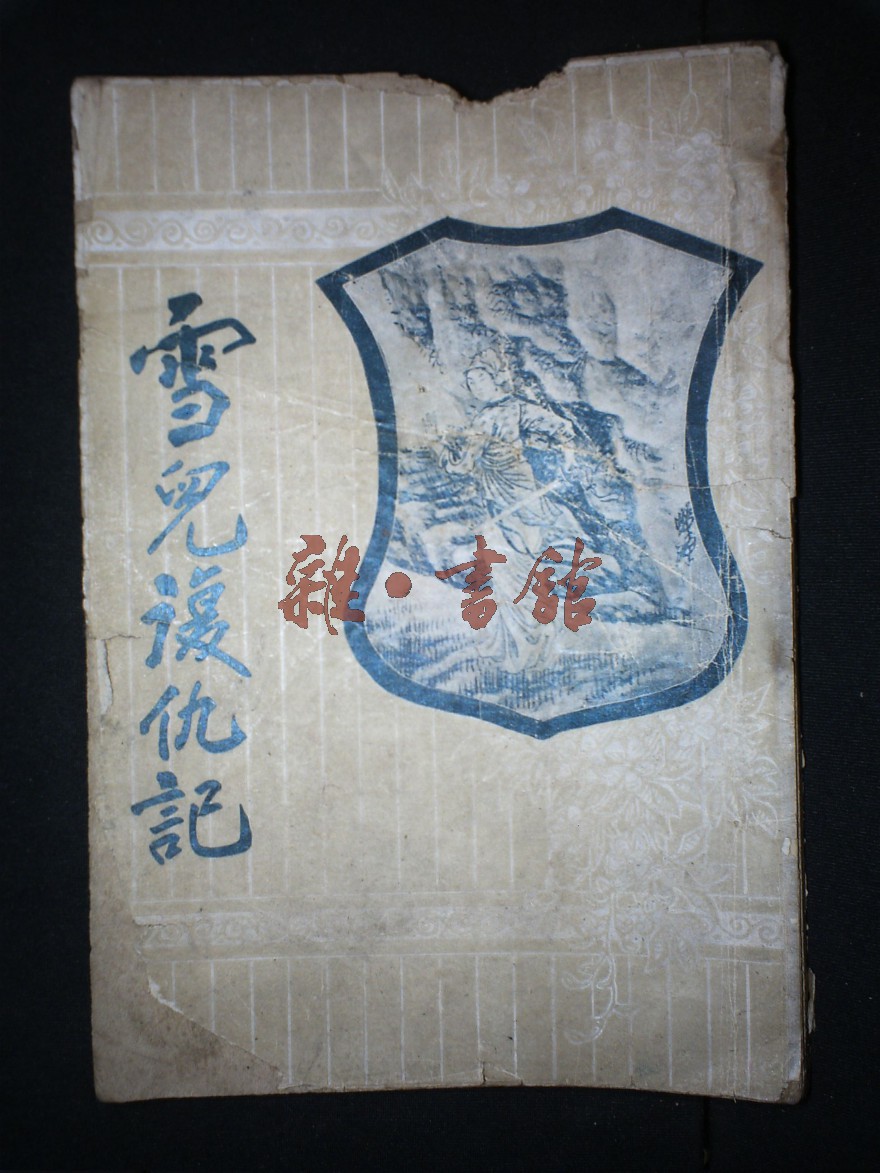 雪兒復仇記
雜·書館